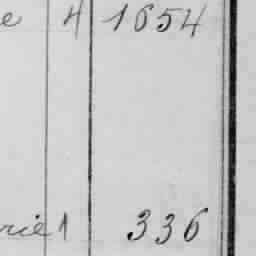 e 4 1654
rie 1 336